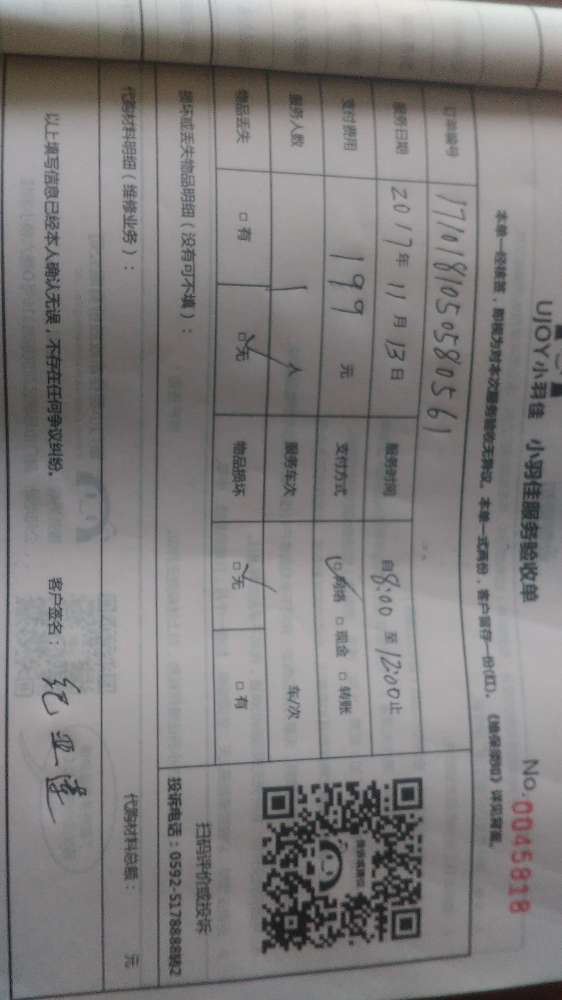 UJOY小羽佳 小羽佳服务验收单 No. 0045818
本单一经接签，即视为对本次服务验收无异议。本单一式两份，客户留存一份(红)。《抽保须知》详见背面。
订单编号 17101810505805 61
服务日期 2017年11月13日 服务时间 自8:00 至12:00止
支付费用 199 元 支付方式 ☑网络 □现金 □转账
服务人数 1 人 服务车次 车/次
物品丢失 □有 ☑无 物品损坏 ☑无 □有
扫码评价或投诉
投诉电话：0592-5178888转2
损坏或丢失物品明细（没有可不填）：
代购材料明细（维修业务）： 代购材料总额： 元
以上填写信息已经本人确认无误，不存在任何争议纠纷。 客户签名：纪亚莲